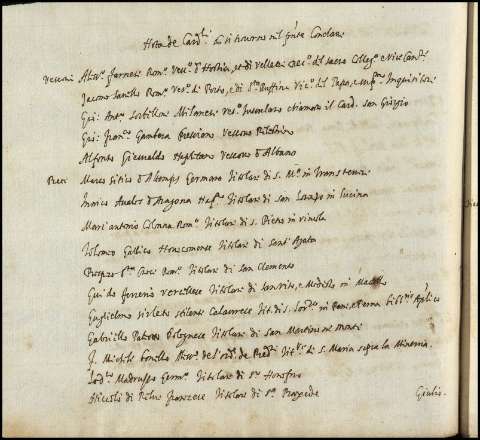 Nota de Card.li che si trovano nel p̃nte Conclave
Vescovi Aless.o Farnese Rom.o Vesc.o d'Hostia, et di Velletri del sacro Colleg.o e Vice Canc.
Jacomo Savello Rom.o Vesc.o di Porto, e di S.ta Ruffina Vic.o del Papa, e Inquisitore
Gio: Ant.o Milanese Vesc.o chiamato il Card. san Giorgio
Gio: Fran.co Gambara Bresciano Vescovo
Alfonso Giesualdo Napolitano Vescovo d'Albano
Preti Marco Sitico d'Altemps Germano Titolare di S. M.a in Transtevere
Innico Avalos d'Aragona Nap.o Titolare di san Lorenzo in Lucina
Marc'antonio Colonna Rom.o Titolare di S. Pietro in vincola
Tolomeo Gallico Titolare di Sant'Agata
Prospero S.ta Croce Rom.o Titolare di san Clemente
Guido Ferrerio vercellese Titolare di san Vito, e Modesto in Macello
Guglielmo Sirleto Calavrese Tit. di S. Lor.zo in Pane e Perna
Gabriello Paleotto Bolognese Titolare di san Martino ne monti
F. Michele Bonello dell'ord.e de Pred.ri Tit.re di S. Maria sopra la Minerva.
Lod.co Madruzzo Germ.o Titolare di S.to Honofrio
Niccolò di Francese Titolare di S.ta Praxede
Giulio.